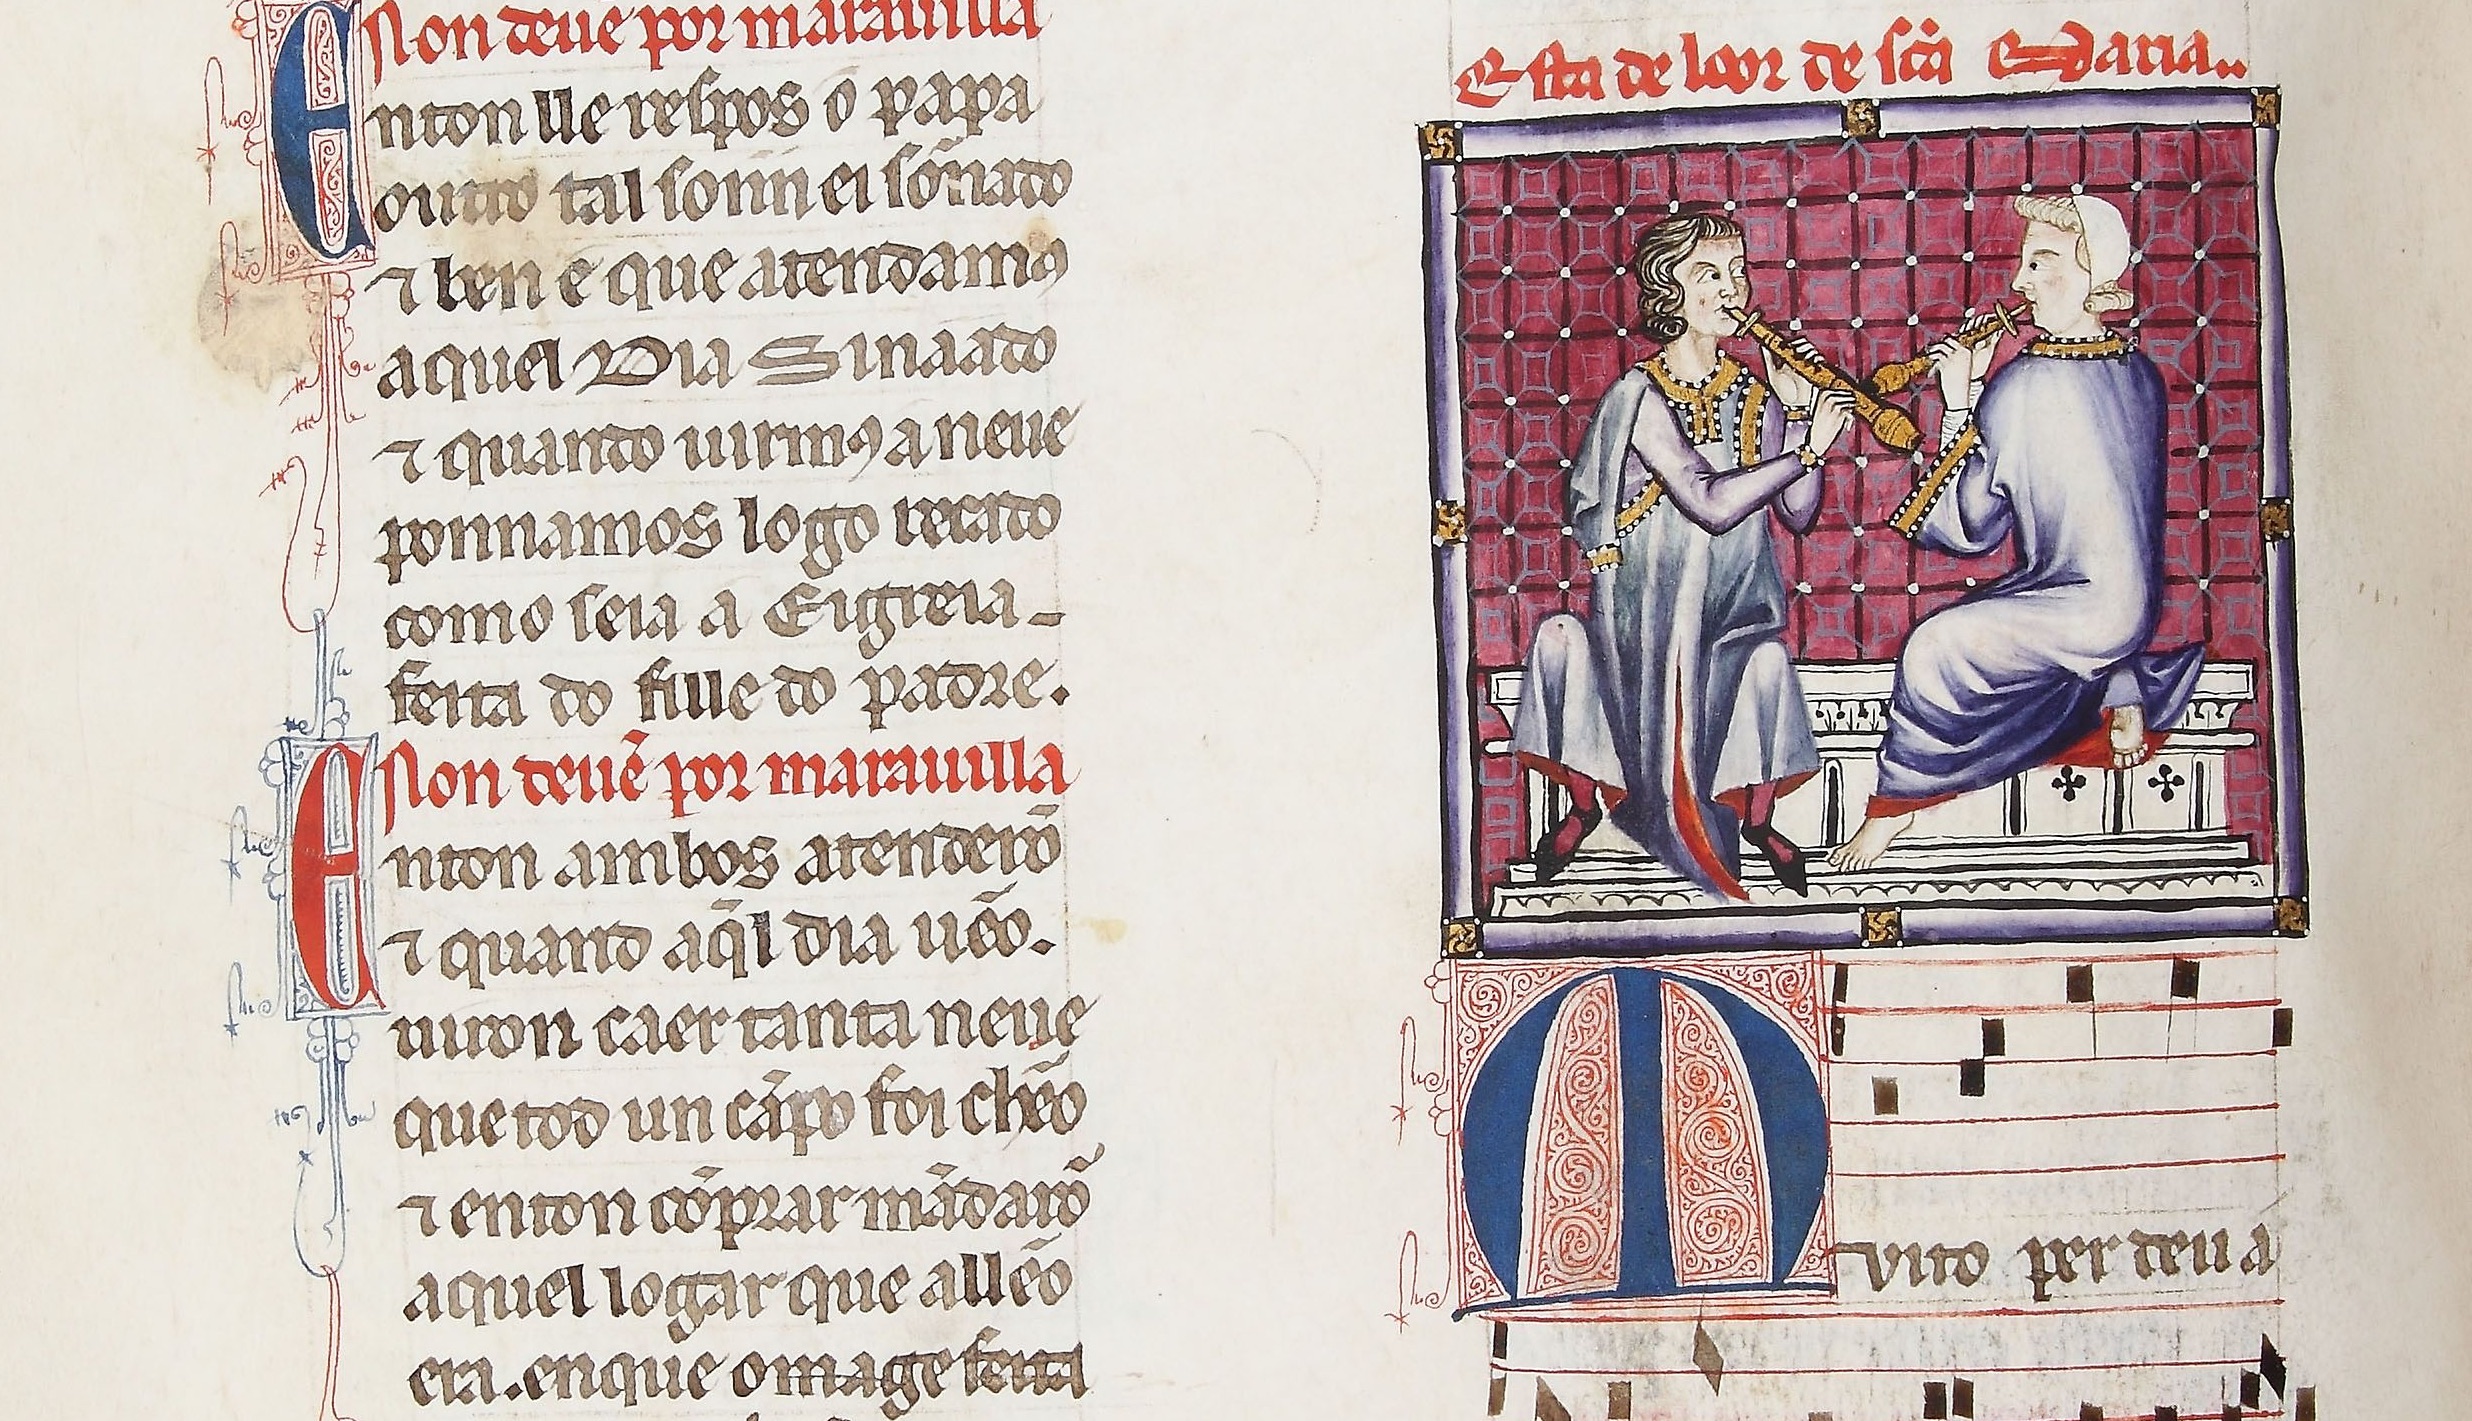 Non deue por marauilla
Enton lle respos o papa
outro tal sonn ei sõnado
⁊ ben e que atendamꝯ
aquel Dia Sinaado
⁊ quanto uirmꝯ a neue
ponnamos logo recado
como seia a Eigreia
feita do fille do padre.
Non deuẽ por marauilla
Enton ambos atenderõ
⁊ quando aq̃l dia uẽo.
uiron caer tanta neue
que tod un cãpo foi chẽo
⁊ enton cõprar mãdarõ
aquel logar que allẽo
era. enque omage feita
Esta de loor de scã Maria..
Muito per deu a